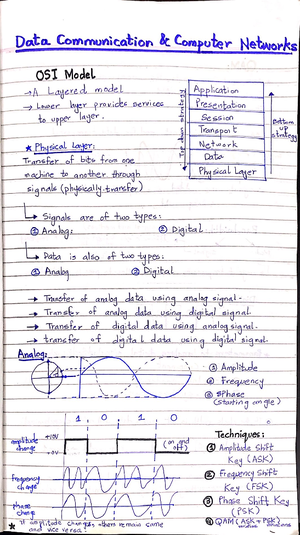 Data Communication & Computer Networks
OSI Model
→ A Layered model
→ Lower layer provides services
to upper layer.
Application
Presentation
Session
Transport
Network
Data
Physical Layer
Top down strategy
Bottom
up
strategy
★ Physical Layer:
Transfer of bits from one
machine to another through
signals (physically transfer)
Signals are of two types:
① Analog:
② Digital
Data is also of two types:
① Analog
② Digital
→ Transfer of analog data using analog signal.
→ Transfer of analog data using digital signal.
→ Transfer of digital data using analog signal.
→ transfer of digital data using digital signal.
Analog:
① Amplitude
② Frequency
③ Phase
(starting angle)
1 0 1 0
amplitude
change
+10V
+0V
(on and
off)
frequency
change
phase
change
Techniques:
① Amplitude Shift
Key (ASK)
② Frequency Shift
Key (FSK)
③ Phase Shift Key
(PSK)
④ QAM (ASK + PSK)
★ if amplitude changes, others remain same
and vice versa.